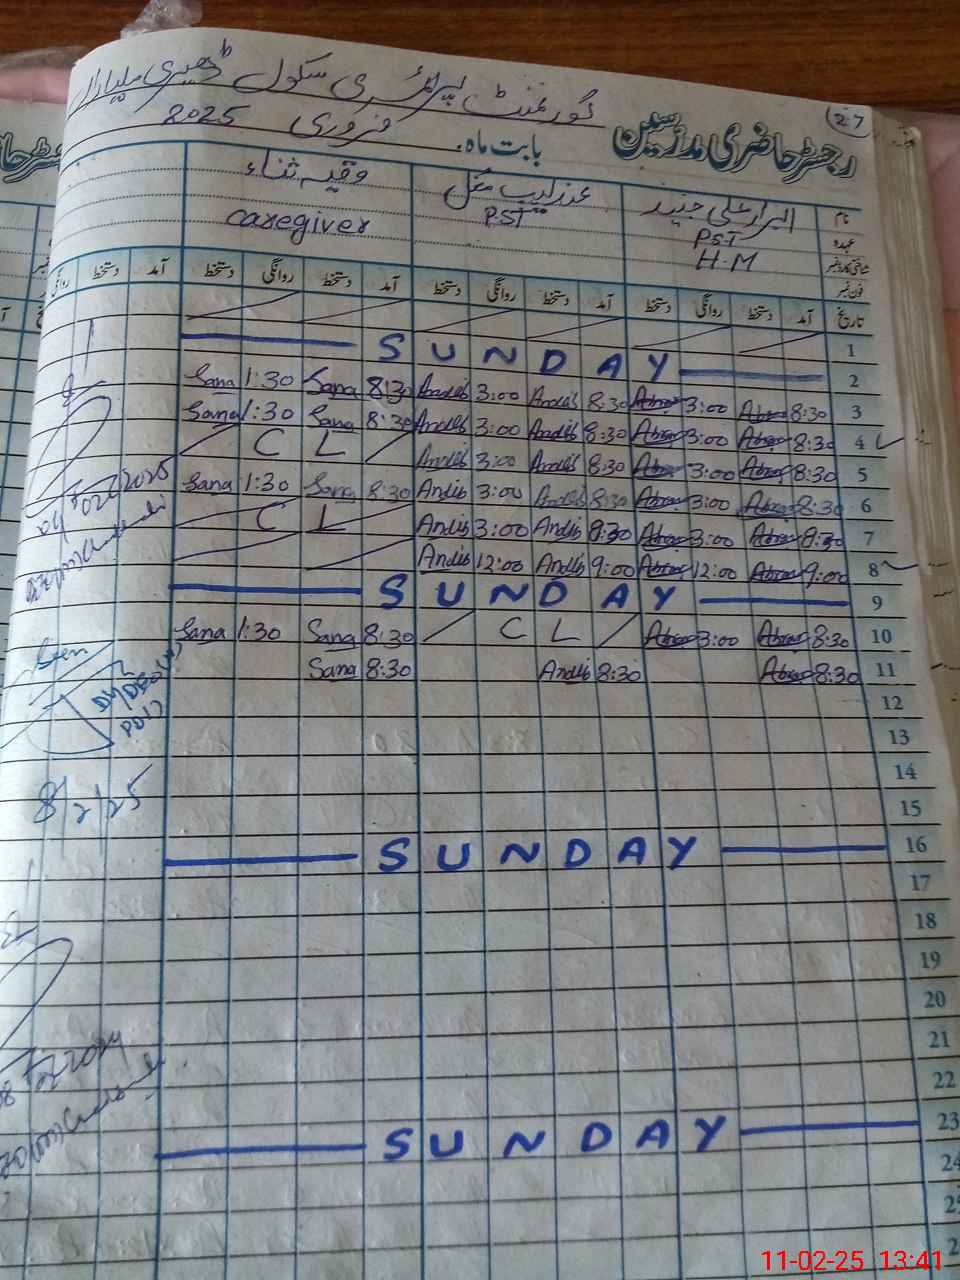 27
گورنمنٹ پرائمری سکول ڈھیری
رجسٹر حاضری مدرسین بابت ماہ۔ فروری 2025
نام ابرار علی جنید عندلیب مغل وقیہ ثناء
عہدہ PST PST caregiver
H.M
فون نمبر
تاریخ آمد دستخط روانگی دستخط آمد دستخط روانگی دستخط آمد دستخط روانگی دستخط آمد دستخط روانگی
1
SUNDAY 2
Sana 1:30 Sana 8:30 Andlib 3:00 Andlib 8:30 Abrar 3:00 Abrar 8:30 3
Sana 1:30 Sana 8:30 Andlib 3:00 Andlib 8:30 Abrar 3:00 Abrar 8:30 4
C L Andlib 3:00 Andlib 8:30 Abrar 3:00 Abrar 8:30 5
Sana 1:30 Sana 8:30 Andlib 3:00 Andlib 8:30 Abrar 3:00 Abrar 8:30 6
C L Andlib 3:00 Andlib 8:30 Abrar 3:00 Abrar 8:30 7
Andlib 12:00 Andlib 9:00 Abrar 12:00 Abrar 9:00 8
SUNDAY 9
Sana 1:30 Sana 8:30 C L Abrar 3:00 Abrar 8:30 10
Sana 8:30 Andlib 8:30 Abrar 8:30 11
12
13
14
15
SUNDAY 16
17
18
19
20
21
22
SUNDAY 23
24
04 Feb 2025
Seen
8/2/25
11-02-25 13:41